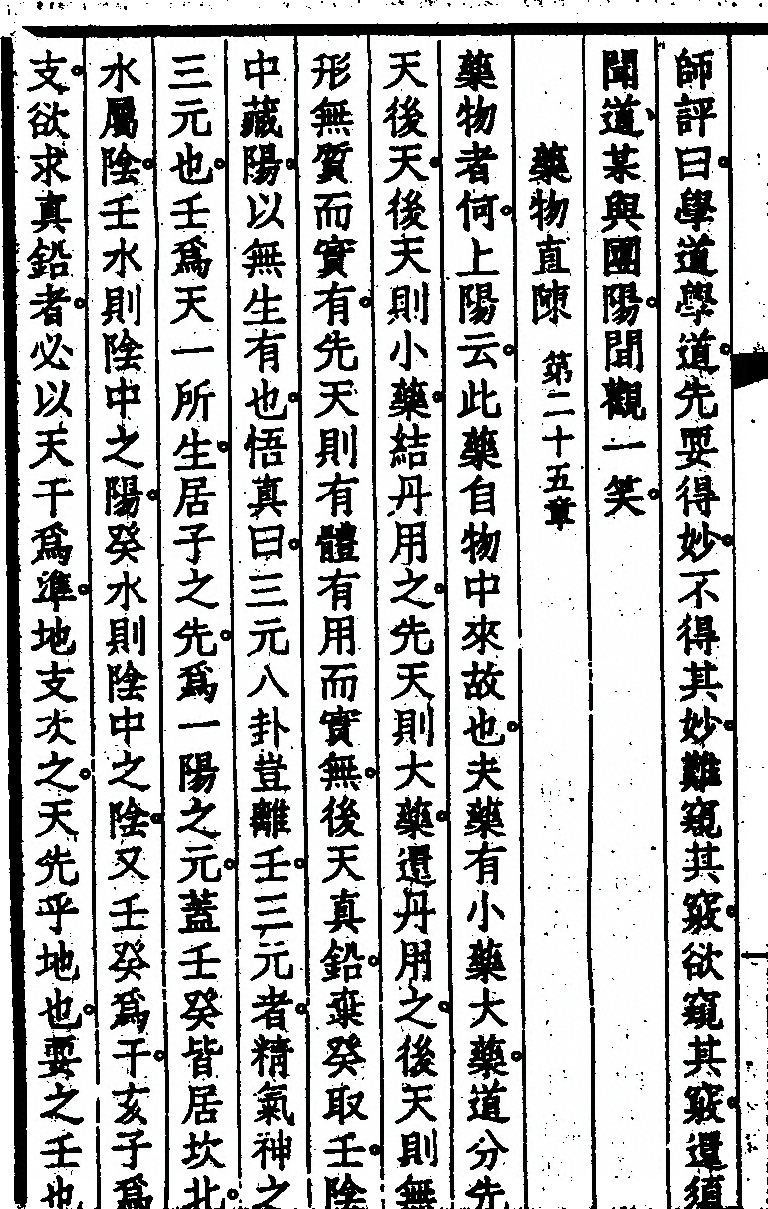 師評曰學道學道先要得妙不得其妙難窺其竅欲窺其竅還須
聞道某與國陽聞觀一笑
藥物直陳 第二十五章
藥物者何上陽云此藥自物中來故也夫藥有小藥大藥道分先
天後天後天則小藥結丹用之先天則大藥還丹用之後天則無
形無質而實有先天則有體有用而實無後天真鉛棄癸取壬陰
中藏陽以無生有也悟真曰三元八卦豈離壬三元者精氣神之
三元也壬爲天一所生居子之先爲一陽之元蓋壬癸皆居坎北
水屬陰壬水則陰中之陽癸水則陰中之陰又壬癸爲干亥子爲
支欲求真鉛者必以天干爲準地支次之天先乎地也要之壬也